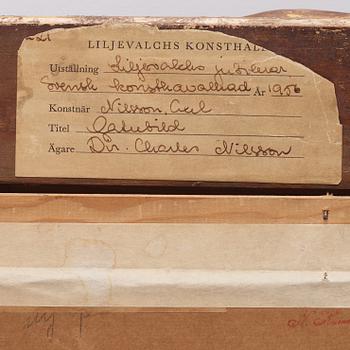 LILJEVALCHS KONSTHAL
Utställning Liljevalchs jubilerar
Svensk konstkavalkad År 1956
Konstnär Nilsson, Axel
Titel Gatubild
Ägare Dir. Charles Nilsson